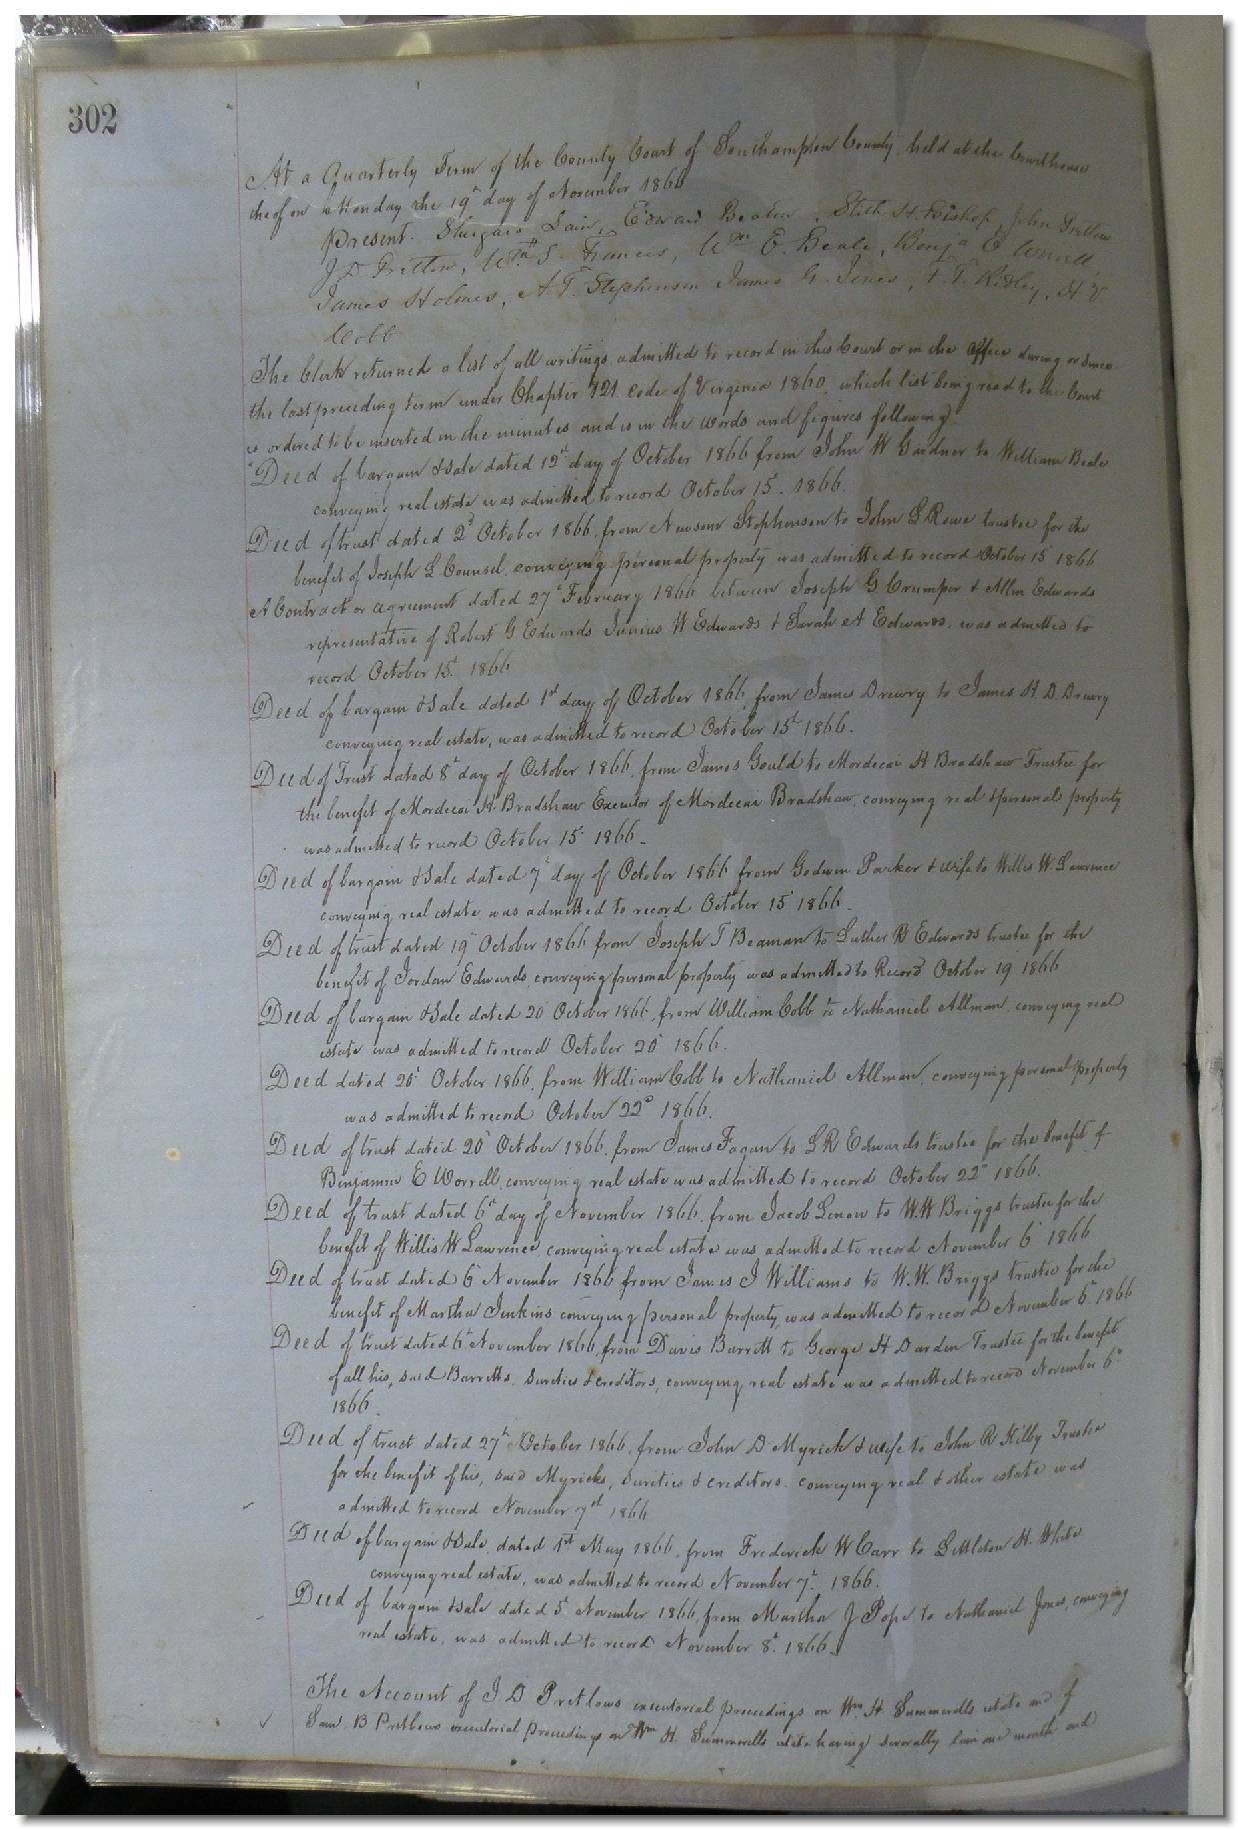 302
At a Quarterly Term of the County Court of Southampton County, held at the Courthouse
theof on Monday the 19th day of November 1866
Present. Edward Beaton, Stith H. Bishop, John Pretlow
J D Pretlow, Wm S. Francis, Wm E. Beale, Benja E Worrell,
James Holmes, A. T. Stephenson James G. Jones, T. T. Ridley, H V.
Cobb
The Clerk returned a list of all writings admitted to record in this Court or in the Office during or since
the last preceding term under Chapter 121 code of Virginia 1860, which list being read to the Court
is ordered to be inserted in the minutes and is in the words and figures following
"Deed of bargain & Sale dated day of October 1866 from John W Gardner to William Beale
conveying real estate was admitted to record October 15. 1866.
Deed of trust dated 2d October 1866, from Newsom Stephenson to John L Rowe trustee for the
benefit of Joseph L Counsel, conveying personal property was admitted to record October 15 1866
A Contract or agreement dated 27th February 1866 between Joseph G Crumpor & Allen Edwards
representative of Robert G Edwards Junius W Edwards & Sarah A Edwards, was admitted to
record October 15th 1866
Deed of bargain & Sale dated 1st day of October 1866, from James Drewry to James H. D. Drewry
conveying real estate, was admitted to record October 15th 1866.
Deed of Trust dated 8th day of October 1866, from James Gould to Mordecai H Bradshaw Trustee for
the benefit of Mordecai H. Bradshaw Executor of Mordecai Bradshaw, conveying real & personal property
was admitted to record October 15th 1866.
Deed of bargain & Sale dated 7th day of October 1866 from Godwin Parker & wife to Willis W Lawrence
conveying real estate was admitted to record October 15th 1866.
Deed of trust dated 19th October 1866 from Joseph T Beaman to Luther R Edwards trustee for the
benefit of Jordan Edwards, conveying personal property was admitted to Record October 19 1866
Deed of bargain & Sale dated 20 October 1866, from William Cobb to Nathaniel Allman, conveying real
estate was admitted to record October 20th 1866.
Deed dated 20th October 1866, from William Cobb to Nathaniel Allman, conveying personal property
was admitted to record October 22d 1866.
Deed of trust dated 20th October 1866, from James Fagan to L R Edwards trustee for the benefit of
Benjamin E Worrell, conveying real estate was admitted to record October 22d 1866.
Deed of trust dated 6th day of November 1866, from Jacob Lenow to W. W Briggs trustee for the
benefit of Willis W Lawrence conveying real estate was admitted to record November 6th 1866
Deed of trust dated 6th November 1866 from James J Williams to W. W. Briggs trustee for the
benefit of Martha Jenkins conveying personal property, was admitted to record November 6th 1866
Deed of trust dated 6th November 1866, from Davis Barrett to George H Darden Trustee for the benefit
of all his, said Barretts, Sureties & creditors, conveying real estate was admitted to record November 6th
1866.
Deed of trust dated 27th October 1866, from John D Myrick & wife to John R Kilby Trustee
for the benefit of his, said Myricks, Sureties & creditors, conveying real & other estate was
admitted to record November 7th 1866
Deed of bargain & Sale, dated 1st May 1866, from Frederick W Carr to Littleton H. White
conveying real estate, was admitted to record November 7th 1866.
Deed of bargain & Sale dated 5th November 1866, from Martha J Pope to Nathaniel Jones, conveying
real estate, was admitted to record November 8th 1866.
The Account of J. D Pretlows executorial proceedings on Wm H Summerells estate and of
Saml B Pretlows executorial proceedings on Wm H. Summerells estate having severally lain one month and